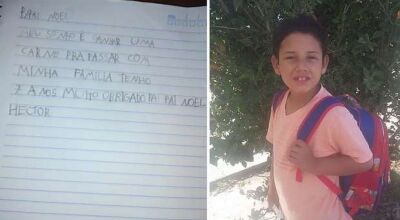 PAPAI NOEL
MEU SONHO E GANHAR UMA
CARNE PRA PASSAR COM
MINHA FAMILIA TENHO
7 ANOS MUITO OBRIGADO PAPAI NOEL
HECTOR